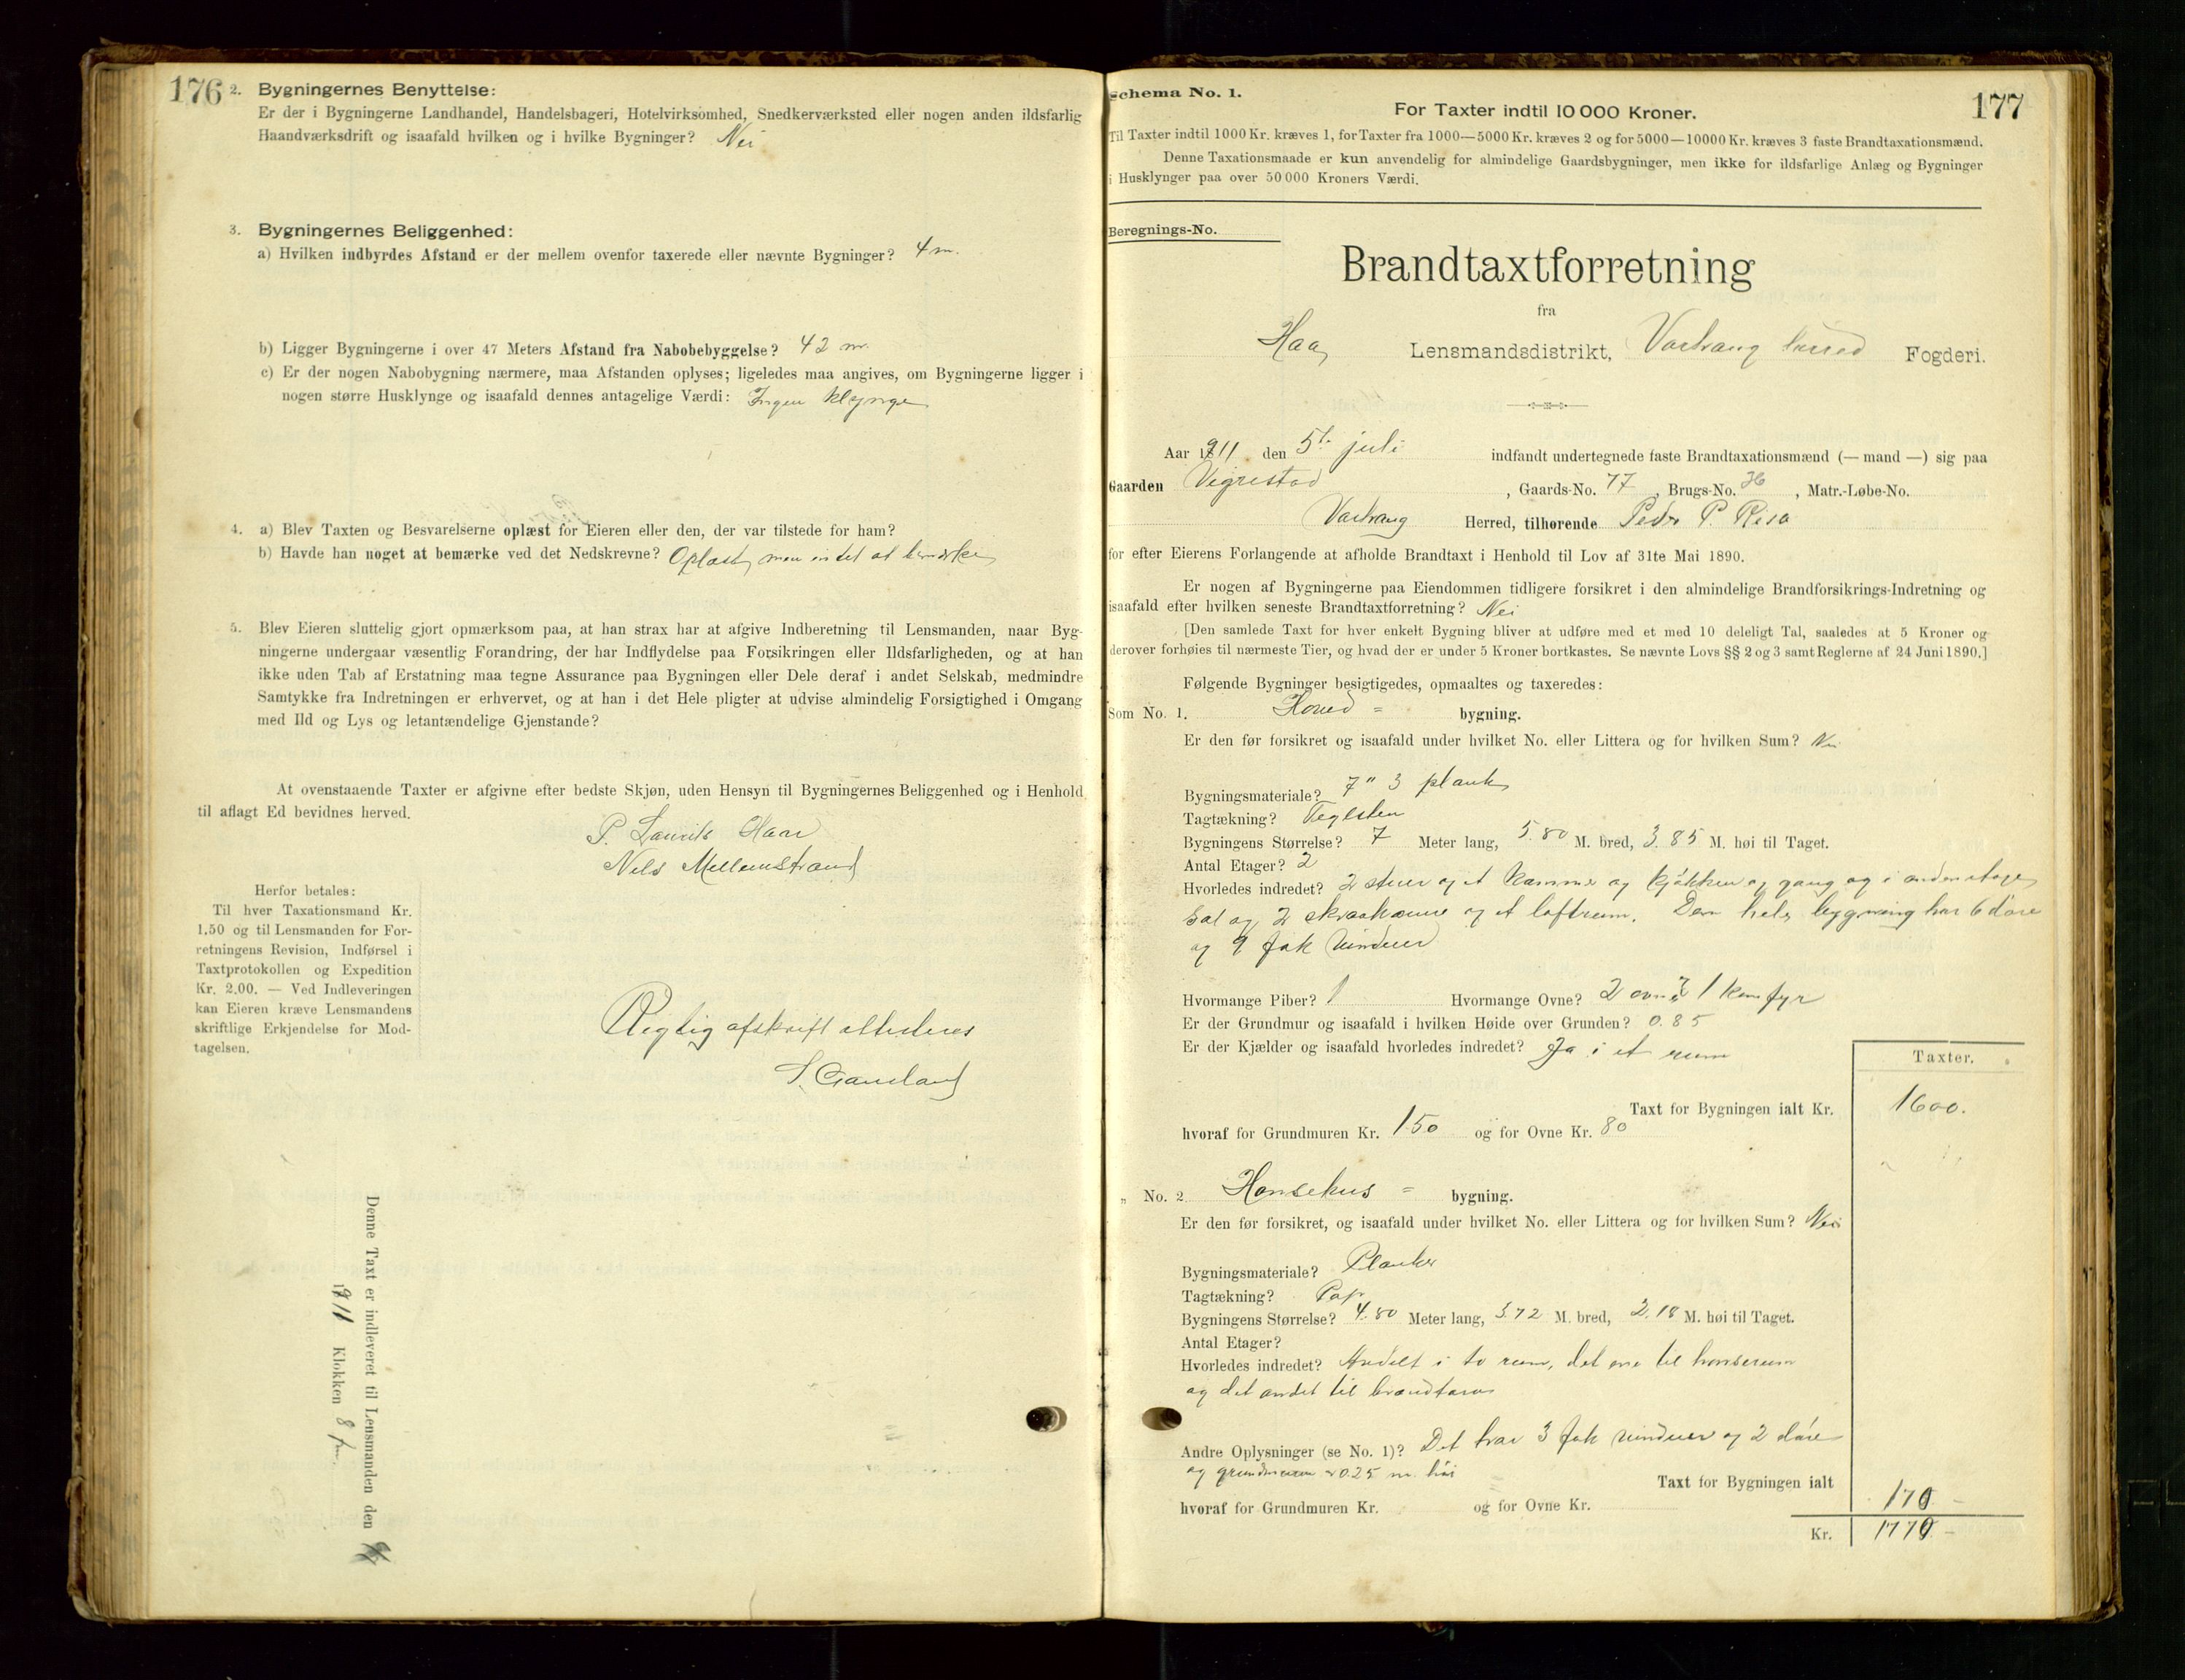 176
2. Bygningernes Benyttelse:
Er der i Bygningerne Landhandel, Handelsbageri, Hotelvirksomhed, Snedkerværksted eller nogen anden ildsfarlig
Haandværksdrift og isaafald hvilken og i hvilke Bygninger? Nei
3. Bygningernes Beliggenhed:
a) Hvilken indbyrdes Afstand er der mellem ovenfor taxerede eller nævnte Bygninger? 4 m.
b) Ligger Bygningerne i over 47 Meters Afstand fra Nabobebyggelse? 42 m.
c) Er der nogen Nabobygning nærmere, maa Afstanden oplyses; ligeledes maa angives, om Bygningerne ligger i
nogen større Husklynge og isaafald dennes antagelige Værdi: Ingen klynge
4. a) Blev Taxten og Besvarelserne oplæst for Eieren eller den, der var tilstede for ham?
b) Havde han noget at bemærke ved det Nedskrevne? Oplæst, men intet at bemærke
5. Blev Eieren sluttelig gjort opmærksom paa, at han strax har at afgive Indberetning til Lensmanden, naar Byg-
ningerne undergaar væsentlig Forandring, der har Indflydelse paa Forsikringen eller Ildsfarligheden, og at han
ikke uden Tab af Erstatning maa tegne Assurance paa Bygningen eller Dele deraf i andet Selskab, medmindre
Samtykke fra Indretningen er erhvervet, og at han i det Hele pligter at udvise almindelig Forsigtighed i Omgang
med Ild og Lys og letantændelige Gjenstande?
At ovenstaaende Taxter er afgivne efter bedste Skjøn, uden Hensyn til Bygningernes Beliggenhed og i Henhold
til aflagt Ed bevidnes herved.
P. Laurits Haar
Nils Mellemstrand
Herfor betales:
Til hver Taxationsmand Kr.
1.50 og til Lensmanden for For-
retningens Revision, Indførsel i
Taxtprotokollen og Expedition
Kr. 2.00. — Ved Indleveringen
kan Eieren kræve Lensmandens
skriftlige Erkjendelse for Mod-
tagelsen.
Rigtig afskrift attesteres
Denne Taxt er indleveret til Lensmanden den
1911 Klokken 8 fm.
177
Schema No. 1.
For Taxter indtil 10 000 Kroner.
Til Taxter indtil 1000 Kr. kræves 1, for Taxter fra 1000—5000 Kr. kræves 2 og for 5000—10000 Kr. kræves 3 faste Brandtaxationsmænd.
Denne Taxationsmaade er kun anvendelig for almindelige Gaardsbygninger, men ikke for ildsfarlige Anlæg og Bygninger
i Husklynger paa over 50 000 Kroners Værdi.
Beregnings-No.
Brandtaxtforretning
fra
Haa Lensmandsdistrikt, Varhaug herred Fogderi.
Aar 1911 den 5te juli indfandt undertegnede faste Brandtaxationsmænd (— mand —) sig paa
Gaarden Vigrestad, Gaards-No. 77, Brugs-No. 36, Matr.-Løbe-No.
Varhaug Herred, tilhørende Peder P. Risa
for efter Eierens Forlangende at afholde Brandtaxt i Henhold til Lov af 31te Mai 1890.
Er nogen af Bygningerne paa Eiendommen tidligere forsikret i den almindelige Brandforsikrings-Indretning og
isaafald efter hvilken seneste Brandtaxtforretning? Nei
[Den samlede Taxt for hver enkelt Bygning bliver at udføre med et med 10 deleligt Tal, saaledes at 5 Kroner og
derover forhøies til nærmeste Tier, og hvad der er under 5 Kroner bortkastes. Se nævnte Lovs §§ 2 og 3 samt Reglerne af 24 Juni 1890.]
Følgende Bygninger besigtigedes, opmaaltes og taxeredes:
Som No. 1. Hoved = bygning.
Er den før forsikret og isaafald under hvilket No. eller Littera og for hvilken Sum? Nei
Bygningsmateriale? 7" 3 plank
Tagtækning? Teglsten
Bygningens Størrelse? 7 Meter lang, 5.80 M. bred, 3.85 M. høi til Taget.
Antal Etager? 2
Hvorledes indredet? 2 stuer og et kammer og kjøkken og gang og i anden etage
sal og 2 skraakamre og et loftrum. Den hele bygning har 6 døre
og 9 fak vinduer
Hvormange Piber? 1 Hvormange Ovne? 2 ovne 1 komfyr
Er der Grundmur og isaafald i hvilken Høide over Grunden? 0.85
Er der Kjælder og isaafald hvorledes indredet? Ja i et rum
Taxter.
Taxt for Bygningen ialt Kr. 1600.
hvoraf for Grundmuren Kr. 150 og for Ovne Kr. 80
" No. 2 Hønsehus = bygning.
Er den før forsikret, og isaafald under hvilket No. eller Littera og for hvilken Sum? Nei
Bygningsmateriale? Planker
Tagtækning? Pap
Bygningens Størrelse? 4.80 Meter lang, 3.72 M. bred, 2.18 M. høi til Taget.
Antal Etager?
Hvorledes indredet? Avdelt i to rum, det ene til hønserum
og det andet til brandtorv
Andre Oplysninger (se No. 1)? Det har 3 fak vinduer og 2 døre
og grundmuren 0.25 m. høi
Taxt for Bygningen ialt 170 -
hvoraf for Grundmuren Kr. og for Ovne Kr.
Kr. 1770 -